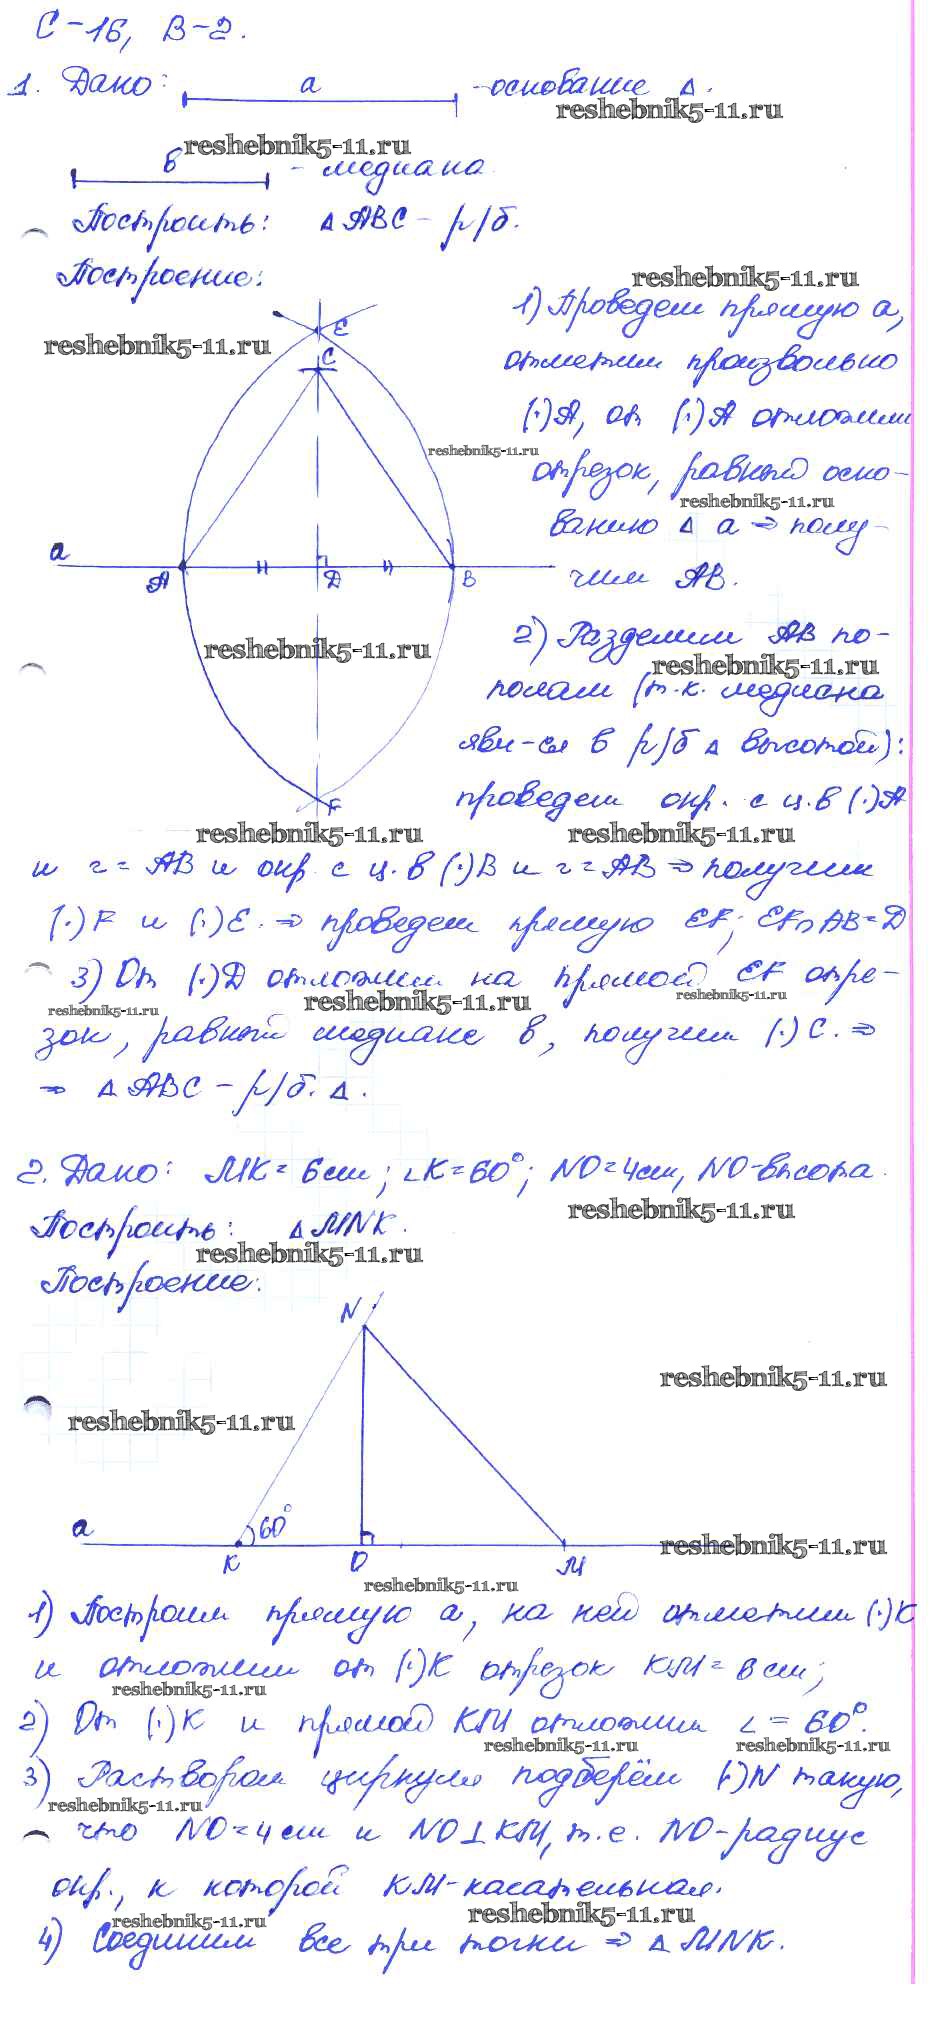 С-16, В-2.
1. Дано: a - основание Δ.
reshebnik5-11.ru
reshebnik5-11.ru
в - медиана
Построить: Δ ABC - р/б.
Построение:
reshebnik5-11.ru
1) Проведем прямую a,
E
reshebnik5-11.ru
C
отметим произвольно
(·)A, от (·)A отложим
reshebnik5-11.ru
отрезок, равный осно-
reshebnik5-11.ru
ванию Δ a ⇒ полу-
a
чим AB.
A D B
2) Разделим AB по-
reshebnik5-11.ru
reshebnik5-11.ru
полам (т.к. медиана
яви-ся в р/б Δ высотой):
проведем окр. с ц. в (·)A
F
reshebnik5-11.ru reshebnik5-11.ru
и r = AB и окр. с ц. в (·)B и r = AB ⇒ получим
(·)F и (·)E. ⇒ проведем прямую EF; EF∩AB=D
3) От (·)D отложим на прямой EF отре-
reshebnik5-11.ru reshebnik5-11.ru reshebnik5-11.ru
зок, равный медиане в, получим (·)C. ⇒
⇒ Δ ABC - р/б. Δ.
2. Дано: MK = 6см; ∠K = 60°; NO = 4см, NO-высота.
reshebnik5-11.ru
Построить: Δ MNK.
reshebnik5-11.ru
Построение:
N
reshebnik5-11.ru
reshebnik5-11.ru
a 60°
reshebnik5-11.ru
K O M
reshebnik5-11.ru
1) Построим прямую a, на ней отметим (·)K
и отложим от (·)K отрезок KM = 6см;
reshebnik5-11.ru
2) От (·)K и прямой KM отложим ∠ = 60°.
reshebnik5-11.ru reshebnik5-11.ru
3) Раствором циркуля подберём (·)N такую,
reshebnik5-11.ru
что NO = 4см и NO⊥KM, т.е. NO-радиус
окр., к которой KM-касательная.
reshebnik5-11.ru reshebnik5-11.ru
4) Соединим все три точки ⇒ Δ MNK.